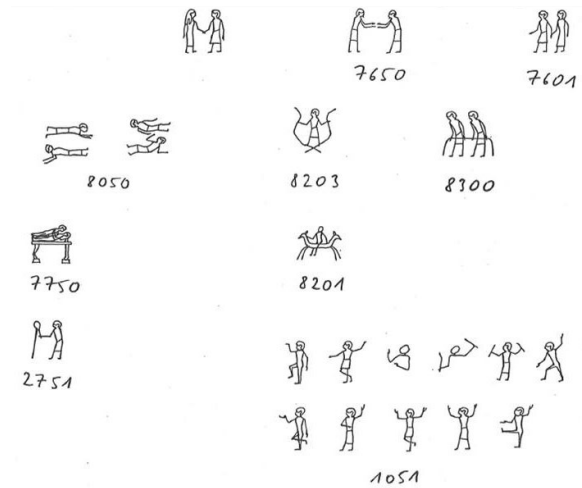 7650
7601
8050
8203
8300
7750
8201
2751
1051